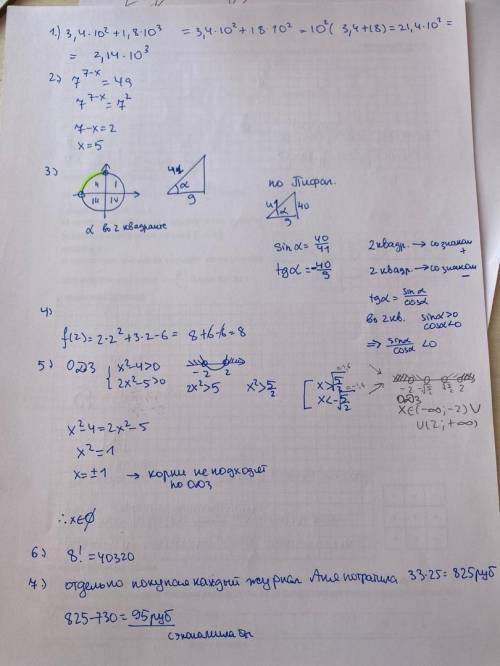 1.) 3,4·10² + 1,8·10³ = 3,4·10² + 18·10² = 10²( 3,4+18) = 21,4·10² =
= 2,14·10³
2) 7^(7-x) = 49
7^(7-x) = 7²
7-x = 2
x = 5
3)
II I
III IV
α во 2 квадранте
41
α
9
по Пифаг.
41 40
α
9
sinα = 40/41
tgα = -40/9
2 квадр. → со знаком +
2 квадр → со знаком -
tgα = sinα/cosα
во 2 кв. sinα>0
cosα<0
⇒ sinα/cosα < 0
4)
f(2) = 2·2² + 3·2 - 6 = 8 + 6 - 6 = 8
5) ОДЗ { x²-4>0
2x²-5>0
-2 2
2x²>5 x²>5/2
[ x>√5/2
x<-√5/2
-2 -√5/2 √5/2 2
ОДЗ
x∈(-∞;-2)∪
∪(2;+∞)
x²-4 = 2x²-5
x² = 1
x = ±1 → корни не подходят
по ОДЗ
∴ x∈∅
6) 8! = 40320
7) отдельно покупая каждый журнал Аня потратила 33·25 = 825 руб
825-730 = 95 руб
сэкономила бы